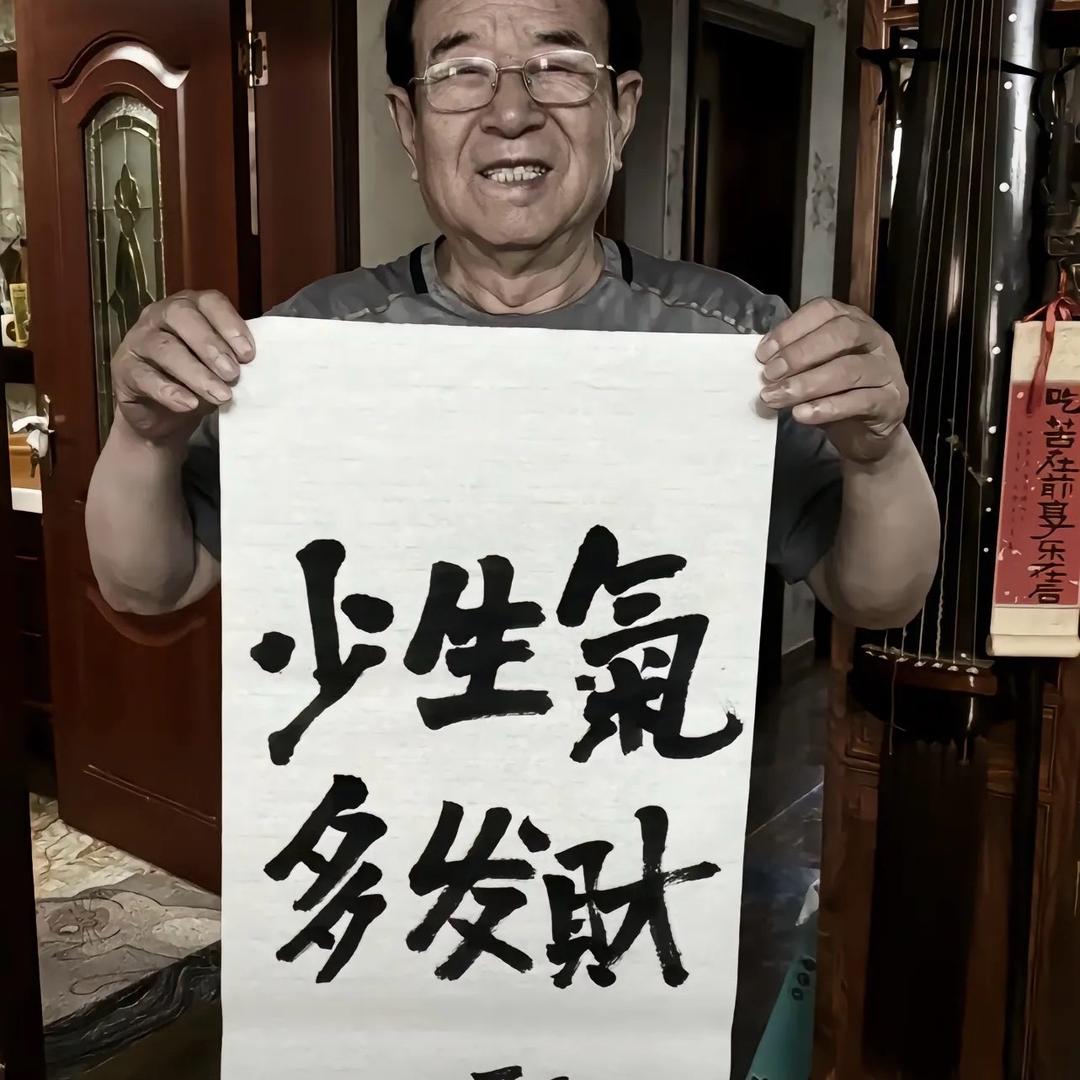 少生氣
多发財
吃苦在前享乐在后